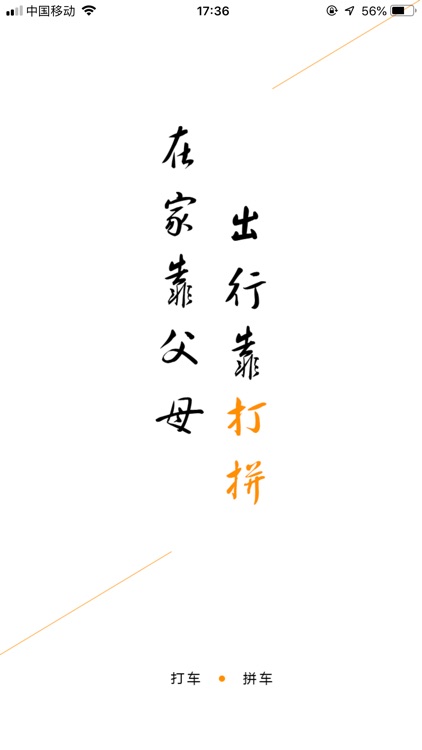 中国移动 17:36 56%
在家靠父母
出行靠打拼
打车 • 拼车